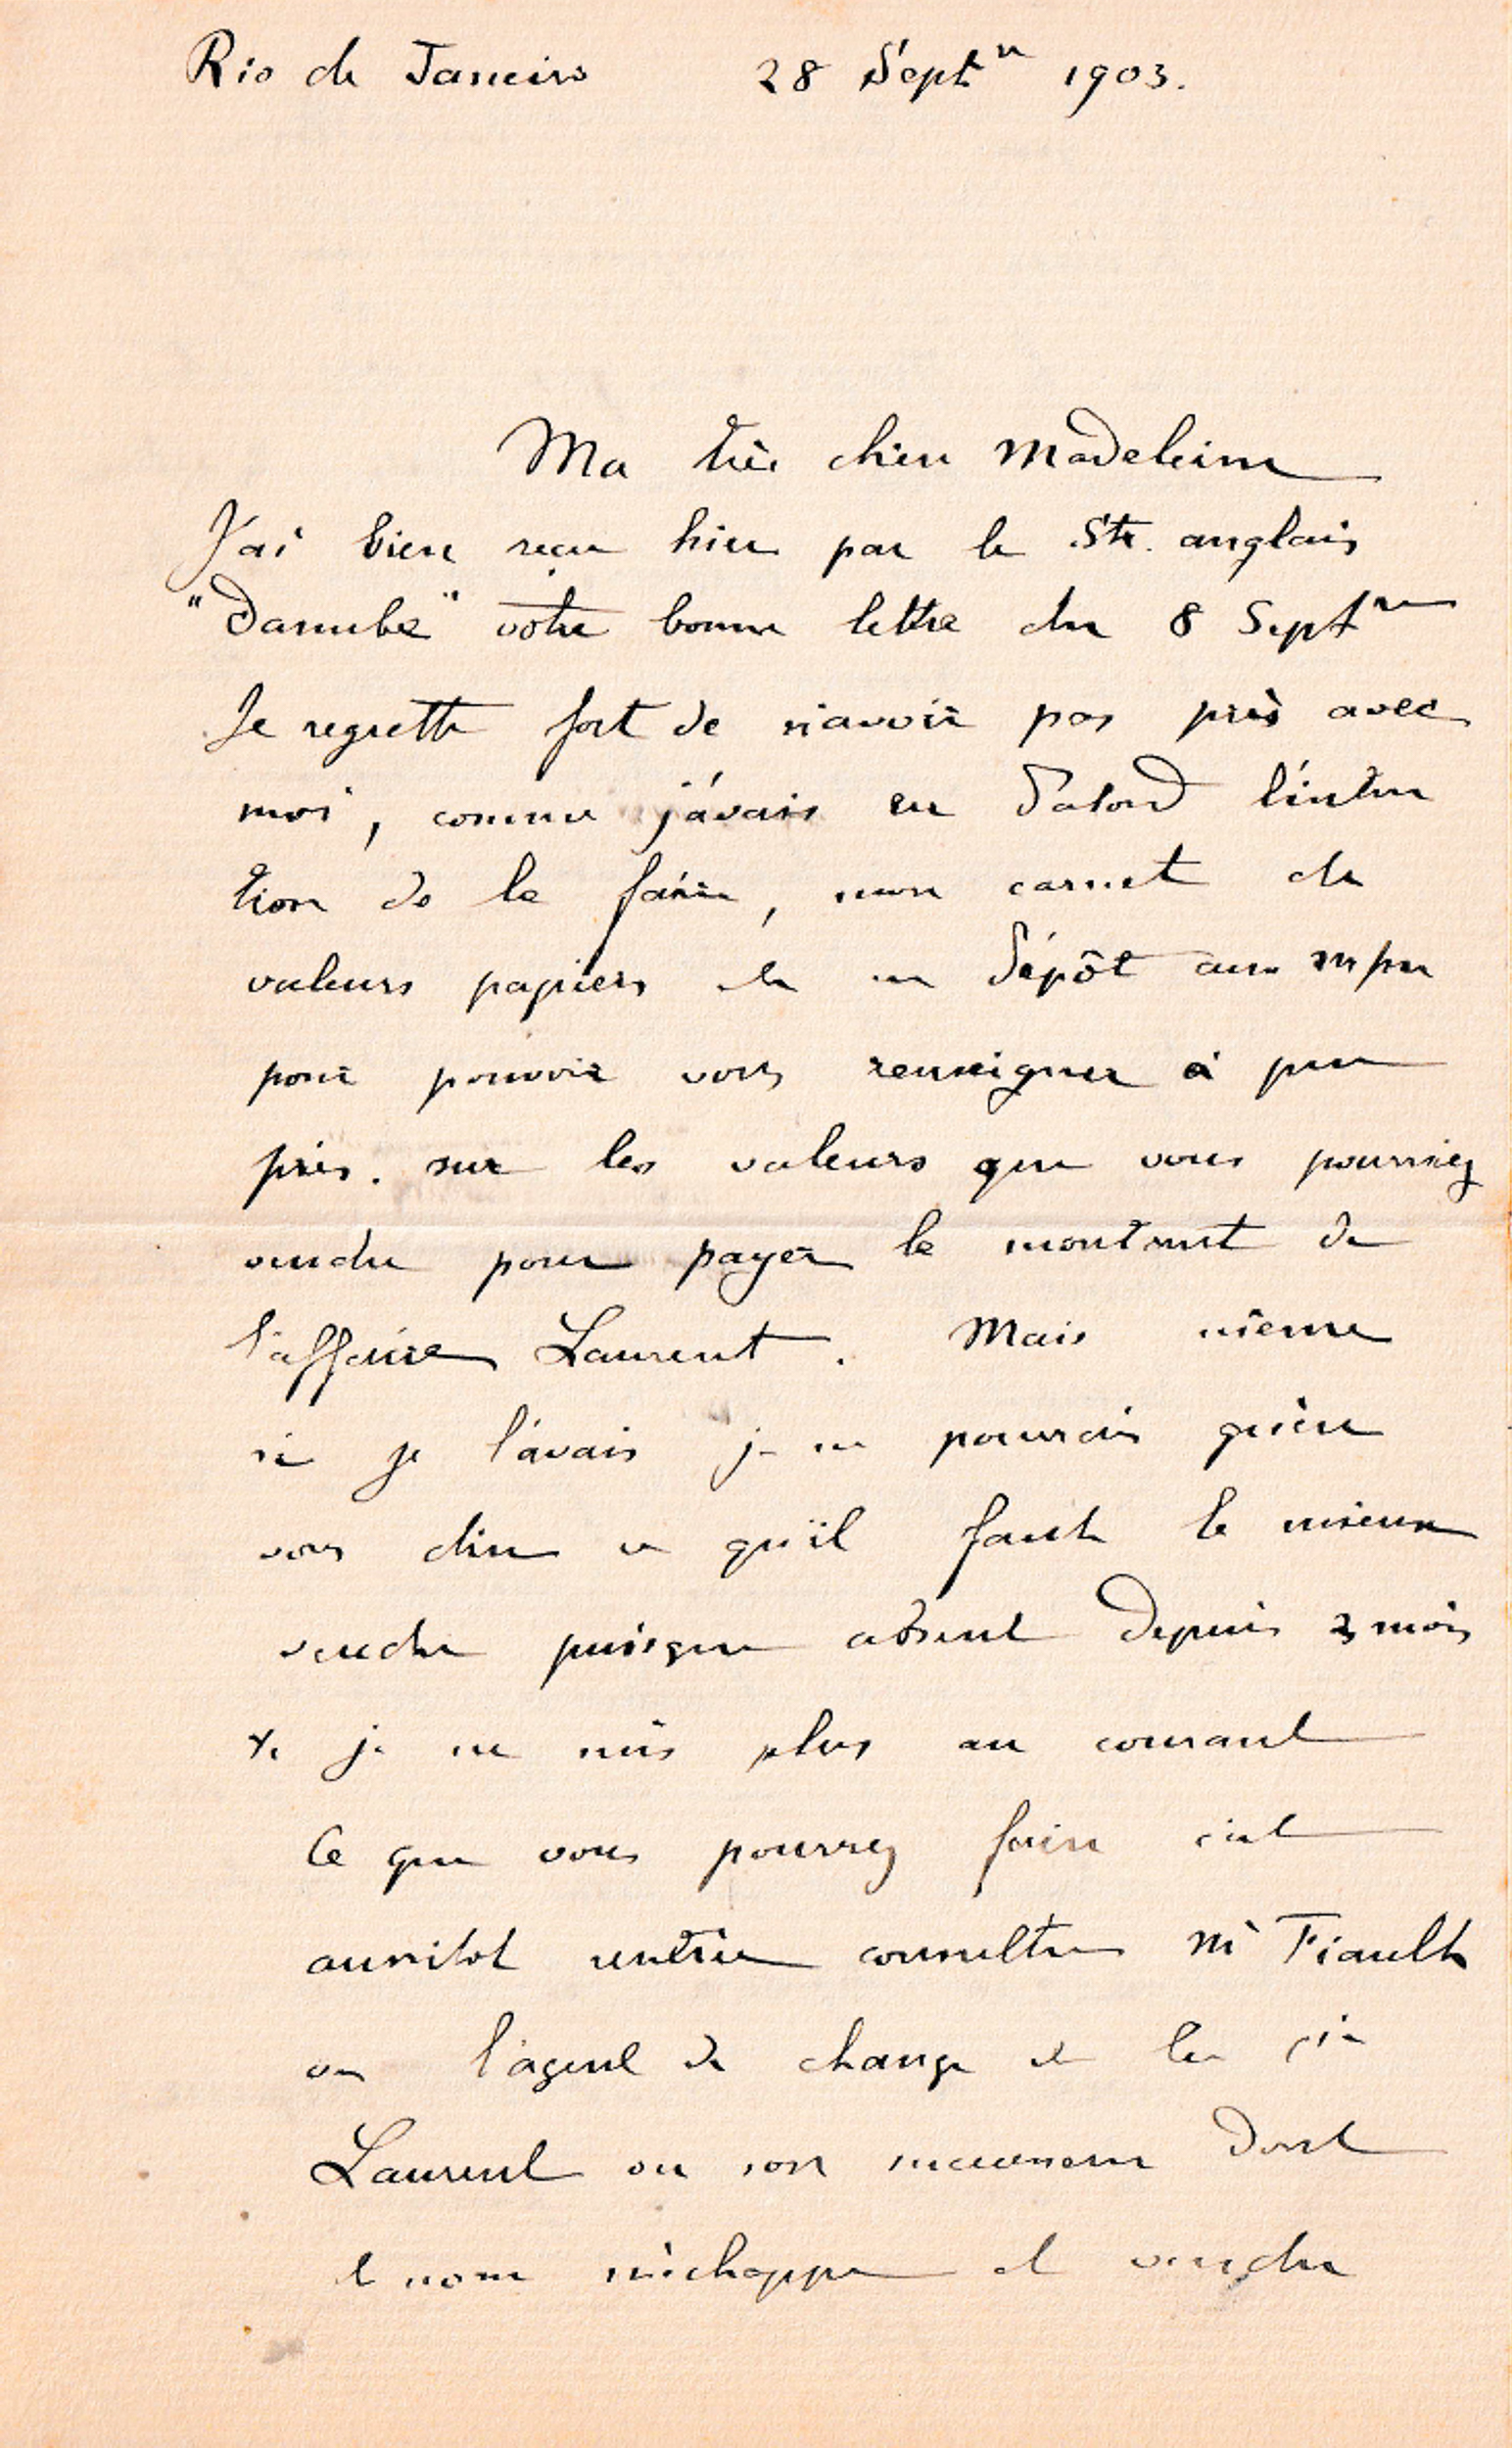 Rio de Janeiro 28 Septre 1903.
Ma très chère Madeleine
J'ai bien reçu hier par le Str. anglais
"Danube" votre bonne lettre du 8 Septre
Je regrette fort de n'avoir pas pris avec
moi, comme j'avais eu d'abord l'inten
tion de le faire, mon carnet de
valeurs papiers de en dépôt aux
pour pouvoir vous renseigner à peu
près. sur les valeurs que vous pourriez
vendre pour payer le montant de
l'affaire Laurent. Mais même
si je l'avais je ne pourrais guère
vous dire ce qu'il faut le mieux
vendre puisque absent depuis 3 mois
je ne suis plus au courant
Ce que vous pourrez faire c'est
aussitôt rentrée consulter Mr Fiault
ou l'agent de change de la Cie
Laurent ou son successeur dont
le nom m'échappe et vendre